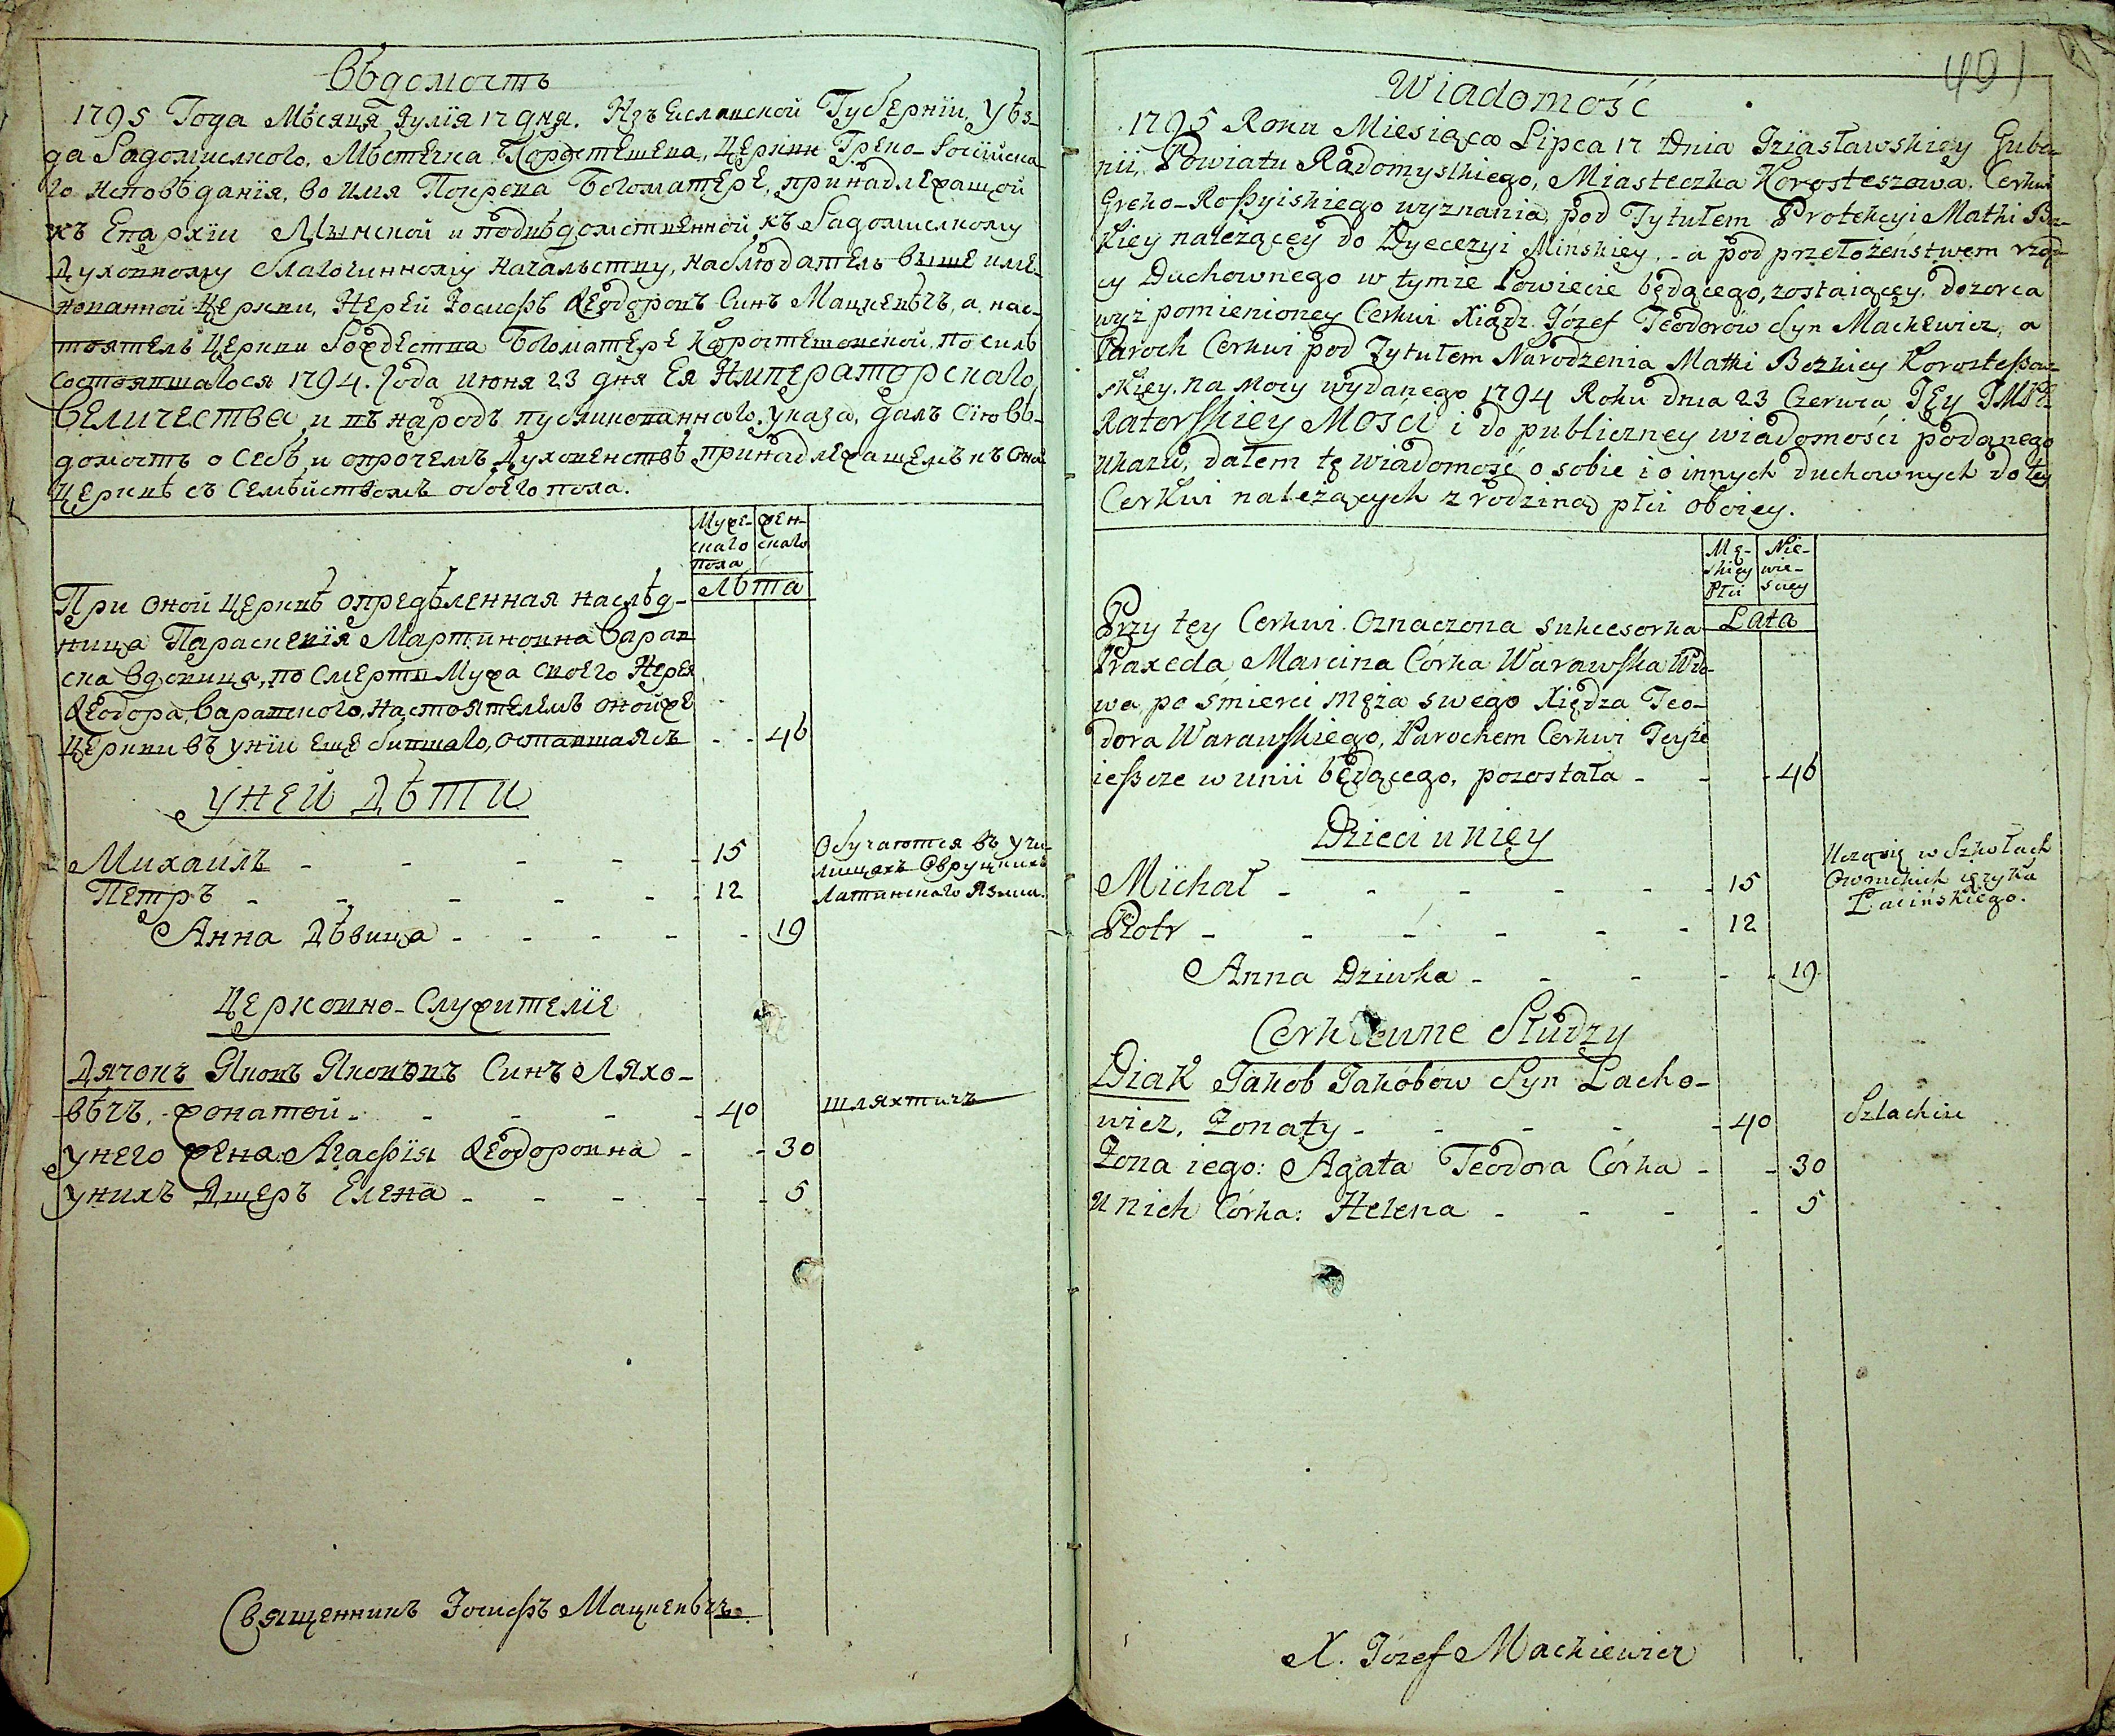 Вѣдомость
1795 Года Мѣсяця Іулія 17 дня. Изъ Еславской Губернїи, Уѣз-
да Радомислкого, Мѣстечка Коростешева, Церкви Греко-Россійска-
го исповѣданїя, во имя Покрова Богоматере, принадлежащой
къ Епархїи Мѣнской и подвѣдомственной къ Радомислкому
Духовному благочинному начальству, наблюдатель выше име-
нованной Церкви, Иерей Іосифъ Ѳеодоровъ Синъ Мацкевѣчъ, а нас-
тоятель Церкви Рождества Богоматере Коростешовской, по силѣ
состоявшагося 1794. Года Июня 23 дня Ея Императорскаго
Величества и въ народъ публикованнаго указа, далъ сїю вѣ-
домость о себѣ и опрочемъ Духовенствѣ принадлежащемъ къ оной
Церквѣ съ Семѣйствомъ обоего пола.
Муже- жен-
скаго скаго
пола
Лѣта
При оной Церквѣ опредѣленная наслѣд-
ница Параскевїя Мартиновна Варав
ска вдовица, по смерти Мужа своего Иерея
Ѳеодора Варавского, настоятелемъ онойже
Церкви въ унїи еще бившаго, оставшаясь - - 46
У ней Дѣти
Михаилъ - - - - 15 Обучаются въ учи-
лищахъ Овруцкихъ
Петръ - - - - - 12 Латинскаго Язика.
Анна Дѣвица - - - - - 19
Церковно-Служителїе
Дячокъ Яковъ Яковѣвъ Синъ Ляхо-
вѣчъ, жонатой - - - - 40 шляхтичъ
У него жена: Агафїя Ѳеодоровна - - 30
У нихъ Дщеръ Елена - - - - - 5
Священникъ Іосифъ Мацкевѣчъ.
401
Wiadomość
1795 Roku Miesiąca Lipca 17 Dnia Iziasławskiey Guber-
nii, Powiatu Radomyslkiego, Miasteczka Korosteszowa. Cerkwi
Greko-Roßyiskiego wyznania pod Tytułem Protekcyi Matki Bo-
skiey należącey do Dyecezyi Mińskiey, - a pod przełożeństwem rząd-
cy Duchownego w tymże Powiecie będącego, zostaiącey, dozorca
wyż pomienioney Cerkwi Xiądz Józef Teodorów Syn Mackewicz, a
Paroch Cerkwi pod Tytułem Narodzenia Matki Bozkiey Korosteßow-
skiey, na mocy wydanego 1794 Roku dnia 23 Czerwca Jey IMPe-
Ratorskiey Mosci i do publiczney wiadomości podanego
ukazu, dałem tę wiadomość o sobie i o innych duchownych do tey
Cerkwi należących z rodziną płci oboiey.
Mę- Nie-
skiey wie-
Płci sciey
Lata
Przy tey Cerkwi Oznaczona sukcesorka
Praxeda Marcina Córka Warawska Wdo-
wa po śmierci męża swego Xiędza Teo-
dora Warawskiego, Parochem Cerkwi Teyże
ießcze w unii będącego, pozostała - - - 46
Dzieci u niey
Michał - - - - - - 15 Uczą się w Szkołach
Owruckich ięzyka
Piotr - - - - - - 12 Łacińskiego.
Anna Dziwka - - - - - 19
Cerkiewne Słudzy
Diak Jakób Jakóbów Syn Lacho-
wicz, Żonaty - - - - - 40 Szlachcic
Żona iego: Agata Teodora Córka - - 30
u nich Córka: Helena - - - - 5
X. Józef Mackiewicz